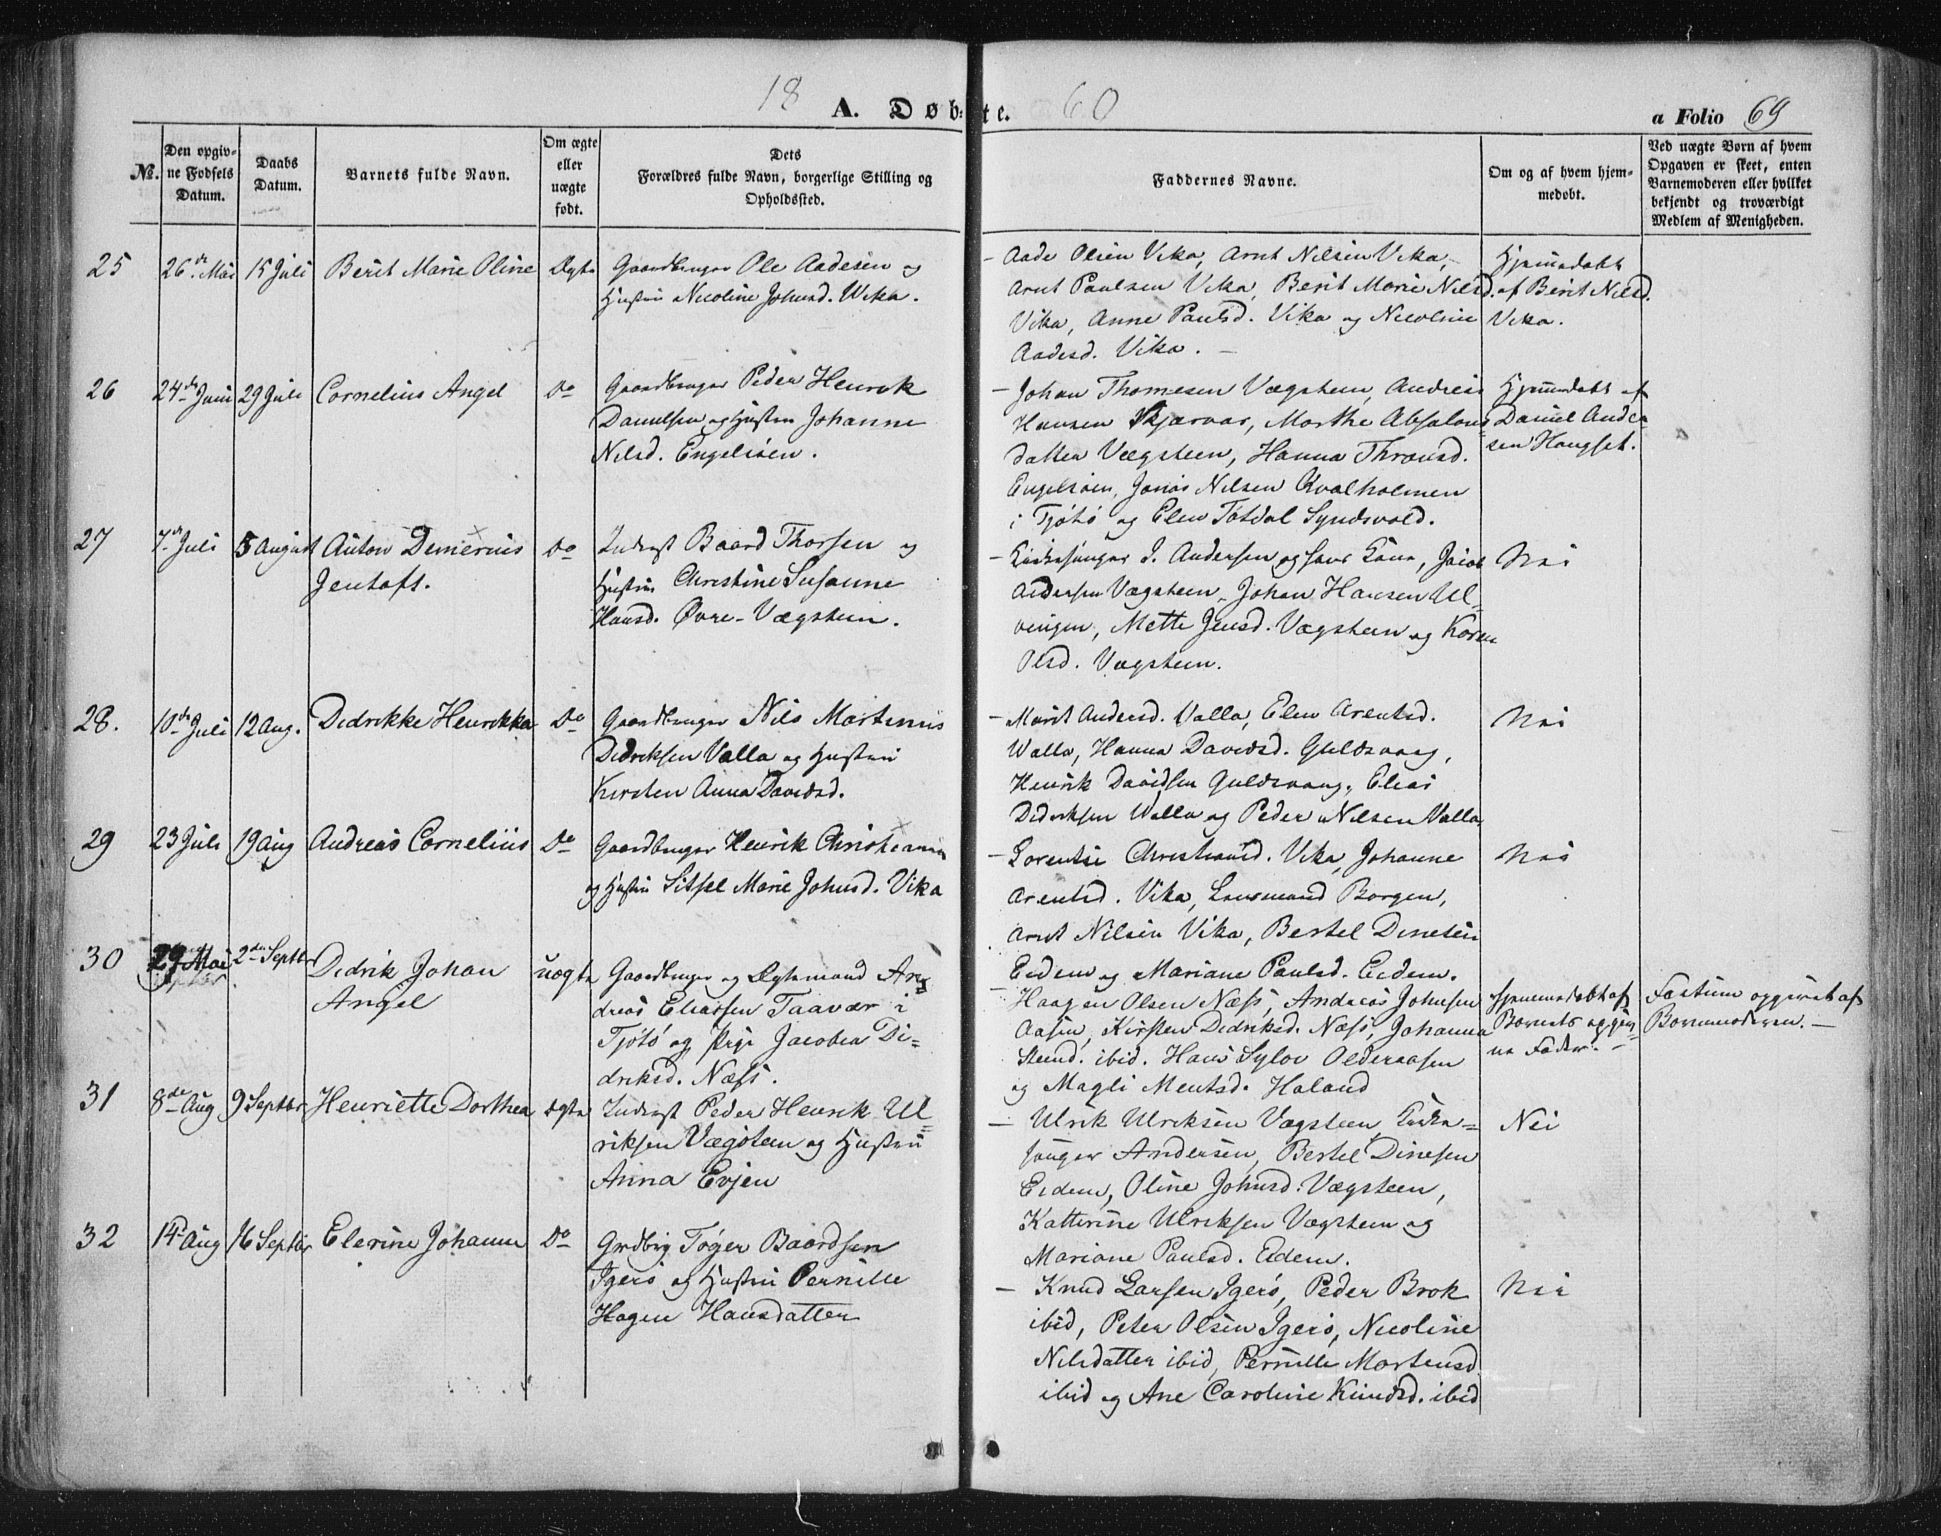 18 A. Døbte. 60
a Folio 69
No.
Den opgiv-
ne Fødsels
Datum.
Daabs
Datum.
Barnets fulde Navn.
Om ægte
eller
uægte
født.
Dets
Forældres fulde Navn, borgerlige Stilling og
Opholdssted.
Faddernes Navne.
Om og af hvem hjem-
medøbt.
Ved uægte Børn af hvem
Opgaven er skeet, enten
Barnemoderen eller hvilket
bekjendt og troværdigt
Medlem af Menigheden.
25 26de Mai 15 Juli Berit Marie Oline Ægte
Gaardbruger Ole Aadesen og
Hustru Nicoline Johnsd. Wika.
- Aade Olsen Vika, Arnt Nilsen Vika,
Arnt Paulsen Vika, Berit Marie Nilsd.
Vika, Anne Paulsd. Vika og Nicoline
Aadesd. Vika. -
Hjemmedøbt
af Berit Nilsd.
Vika.
26 24de Juni 29 Juli Cornelius Angel Do
Gaardbruger Peder Henrik
Danielsen og Hustru Johanne
Nilsd. Engelsöen.
- Johan Thomesen Vægsteen, Andreas
Hansen Skjærvær, Marthe Absalons-
datter Vægsteen, Hanna Thronsd.
Engelsöen, Jonas Nilsen Kvalholmen
i Tjötö og Elen Tötdal Syndsvold.
Hjemmedøbt af
Daniel Ander-
sen Haugset.
27 7de Juli 5 August Anton Demerius
Jentoft.
Do
Inderst Baard Thorsen og
Hustru Christine Susanne
Hansd. Øvre-Vægsteen.
- Kirkesanger J. Andersen og hans Kone, Jacob
Andersen Vægsteen, Johan Hansen Ul-
vingen, Mette Jensd. Vægsteen og Karen
Olsd. Vægsteen.
Nei
28. 10de Juli 12 Aug. Didrikke Henrikka Do
Gaardbruger Nils Martinus
Didriksen Valla og Hustru
Kirsten Anna Davidsd.
- Marit Andersd. Valla, Elen Arentsd.
Walla, Hanna Davidsd. Guldsvaag,
Henrik Davidsen Guldsvaag, Elias
Didriksen Walla og Peder Nilsen Valla
Nei
29 23 Juli 19 Aug Andreas Cornelius Do
Gaardbruger Henrik Christiansen
og Hustru Sitsel Marie Johnsd. Vika
- Lorentse Christiansd. Vika, Johanne
Arentsd. Vika, Lensmand Borgen,
Arnt Nilsen Vika, Bertel Dinesen
Eidem og Mariane Paulsd. Eidem.
Nei
30 29 Mai 2den Septbr Didrik Johan
Angel
uægte
Gaardbruger og Ægtemand An-
dreas Eliassen Taavær i
Tjötö og Pige Jacobea Di-
driksd. Næss.
Haagen Olsen Næss, Andreas Johnsen
Aasen, Kirsten Didriksd. Næss, Johanna
Steind. ibid. Hans Sylov Olderaasen
og Magli Mentsd. Haland
Hjemmedøbt af
Barnets opgiv-
ne Fader. -
Factum opgivet af
Barnemoderen. -
31 8de Aug 9 Septbr Henriette Dorthea Ægte
Inderst Peder Henrik Ul-
riksen Vægsteen og Hustru
Anna Evjen
- Ulrik Ulriksen Vægsteen, Kirke-
sanger Andersen, Bertel Dinesen
Eidem, Oline Johnsd. Vægsteen,
Katterine Ulriksen Vægsteen og
Mariane Paulsd. Eidem.
Nei
32 14de Aug 16 Septbr Elerine Johanne Do
Grdbrg Töger Baardsen
Igerö og Hustru Pernille
Hagen Hansdatter
- Knud Larsen Igerö, Peder Brok
ibid, Peter Olsen Igerö, Nicoline
Nilsdatter ibid, Pernille Mortensd
ibid og Ane Caroline Knudsd. ibid
Nei